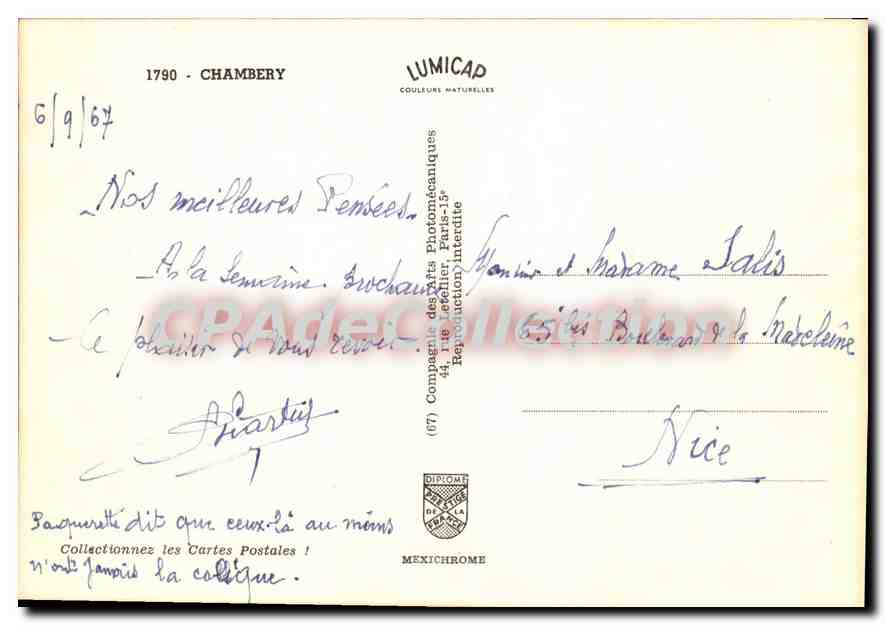 1790 - CHAMBERY
LUMICAP
COULEURS NATURELLES
6/9/67
Nos meilleures Pensées.
A la Semaine. prochaine
Le plaisir de vous revoir.
Paquerette dit que ceux-là au moins
Collectionnez les Cartes Postales !
n'ont Jamais la colique.
(67) Compagnie des Arts Photomécaniques
44, rue Letellier, Paris-15e
Reproduction interdite
Monsieur et Madame Salis
65 bis Boulevard de la Madeleine
Nice
DIPLOME
PRESTIGE
DE LA
FRANCE
MEXICHROME
CPAdeCollection